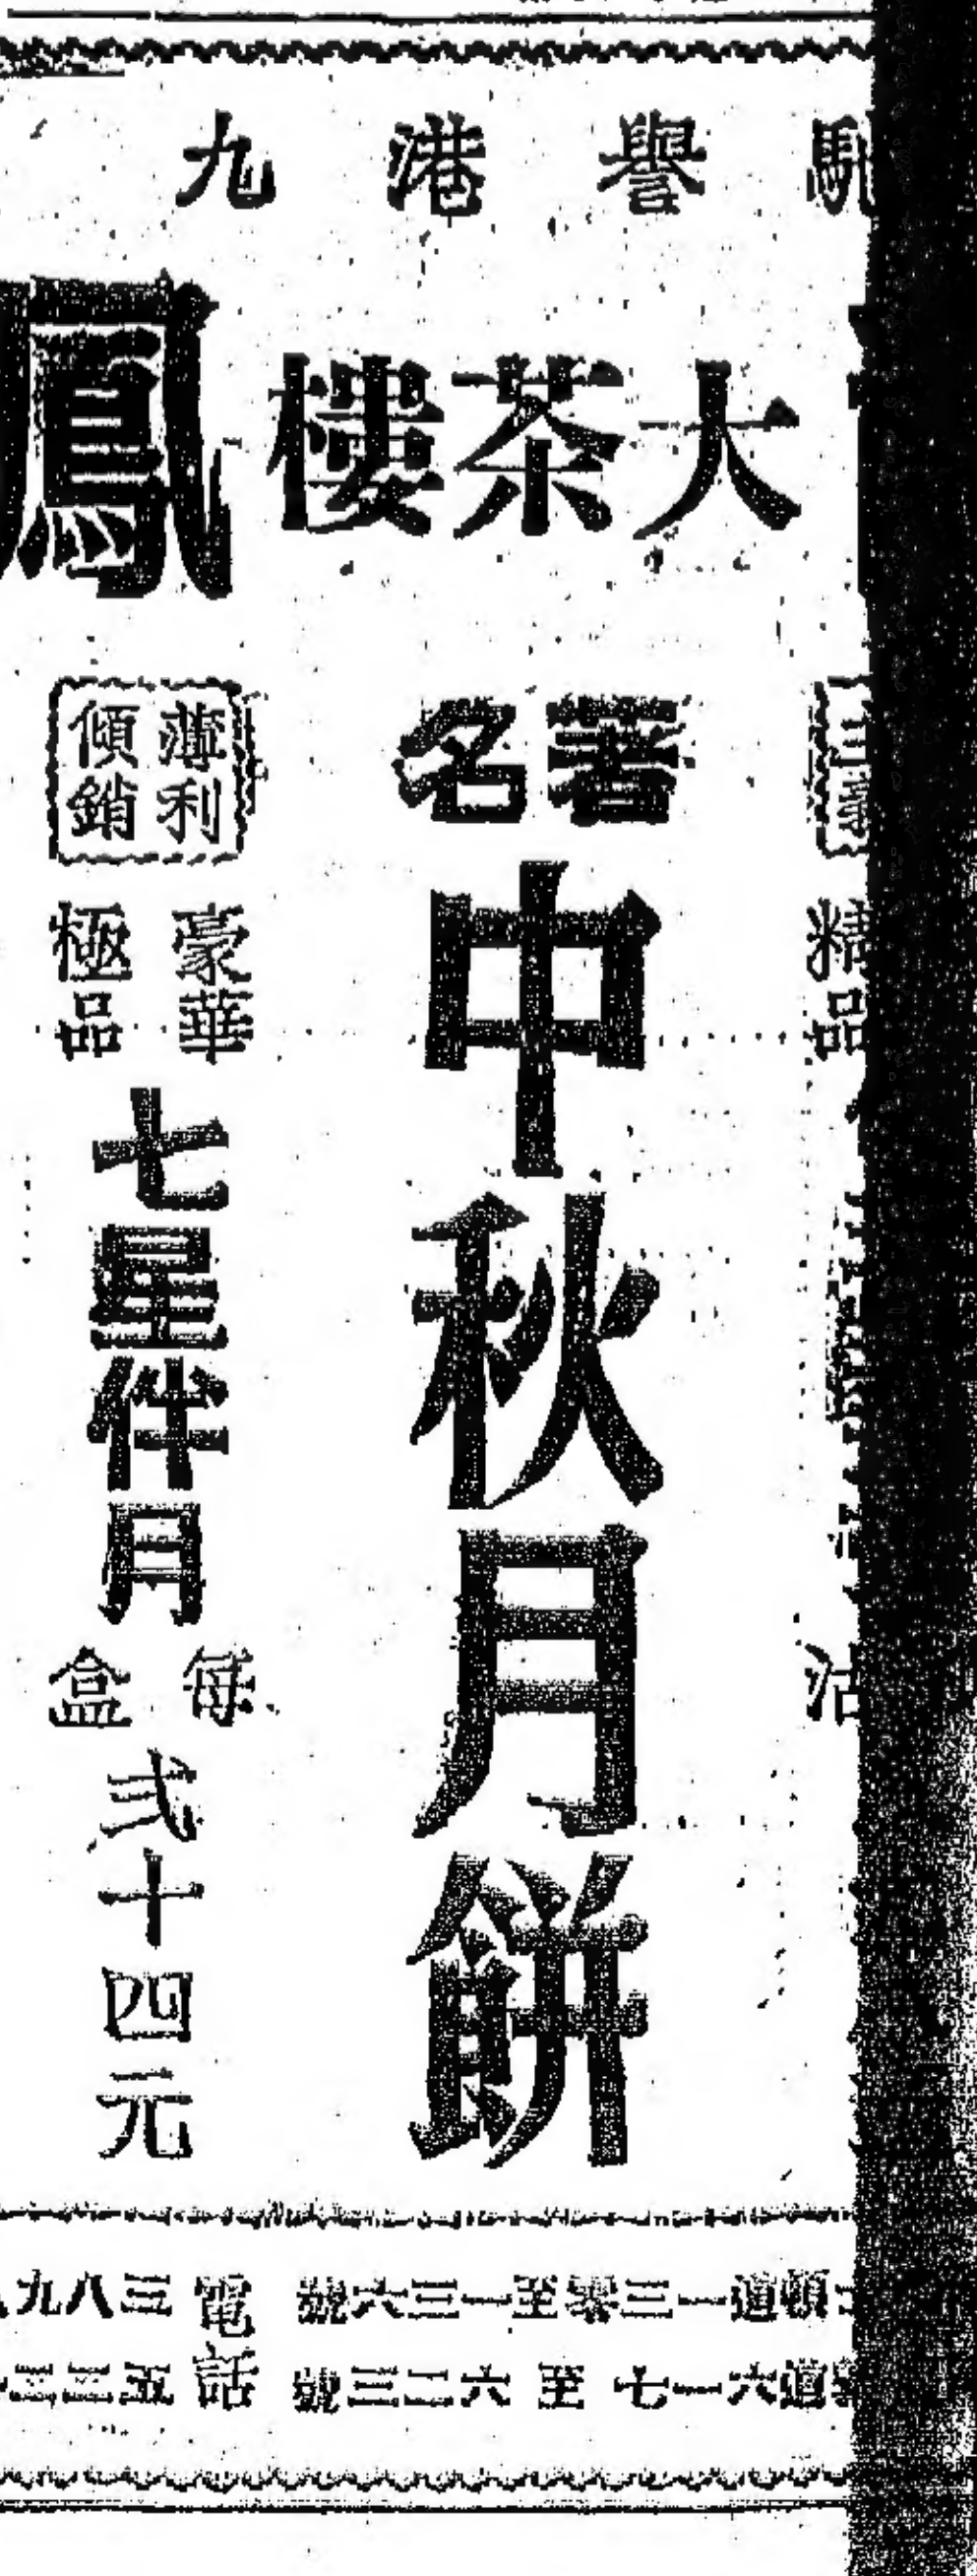 馳譽港九
大茶樓
鳳
著名
中秋月餅
精品
沽
薄利
傾銷
豪華
極品
七星伴月
每盒
弍十四元
頓道一三零至一三六號
道六一七至六二三號
電話
三八九
五三三